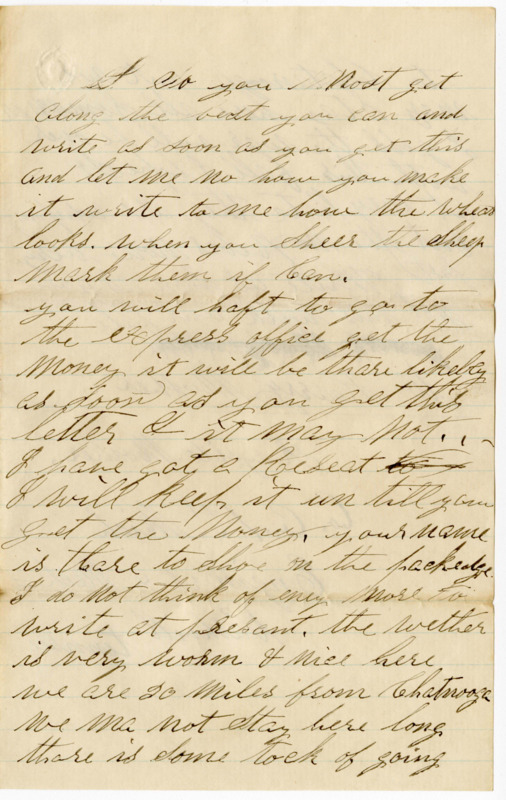 I do you Most get
along the best you can and
write as soon as you get this
and let me no how you make
it write to me how the wheat
looks. when you sheer the sheep
Mark them if Can.
you will haft to go to
the express office get the
Money it will be thare likeley
as soon as you get this
letter & it may not..
I have got a Reseat to
I will keep it un till you
get the Money. your name
is thare to shoe on the packedge.
I do not think of eney more to
write at presant. the wether
is very worm & nice here
we are 20 miles from Chatnooga
We ma not stay here long
thare is some tock of going